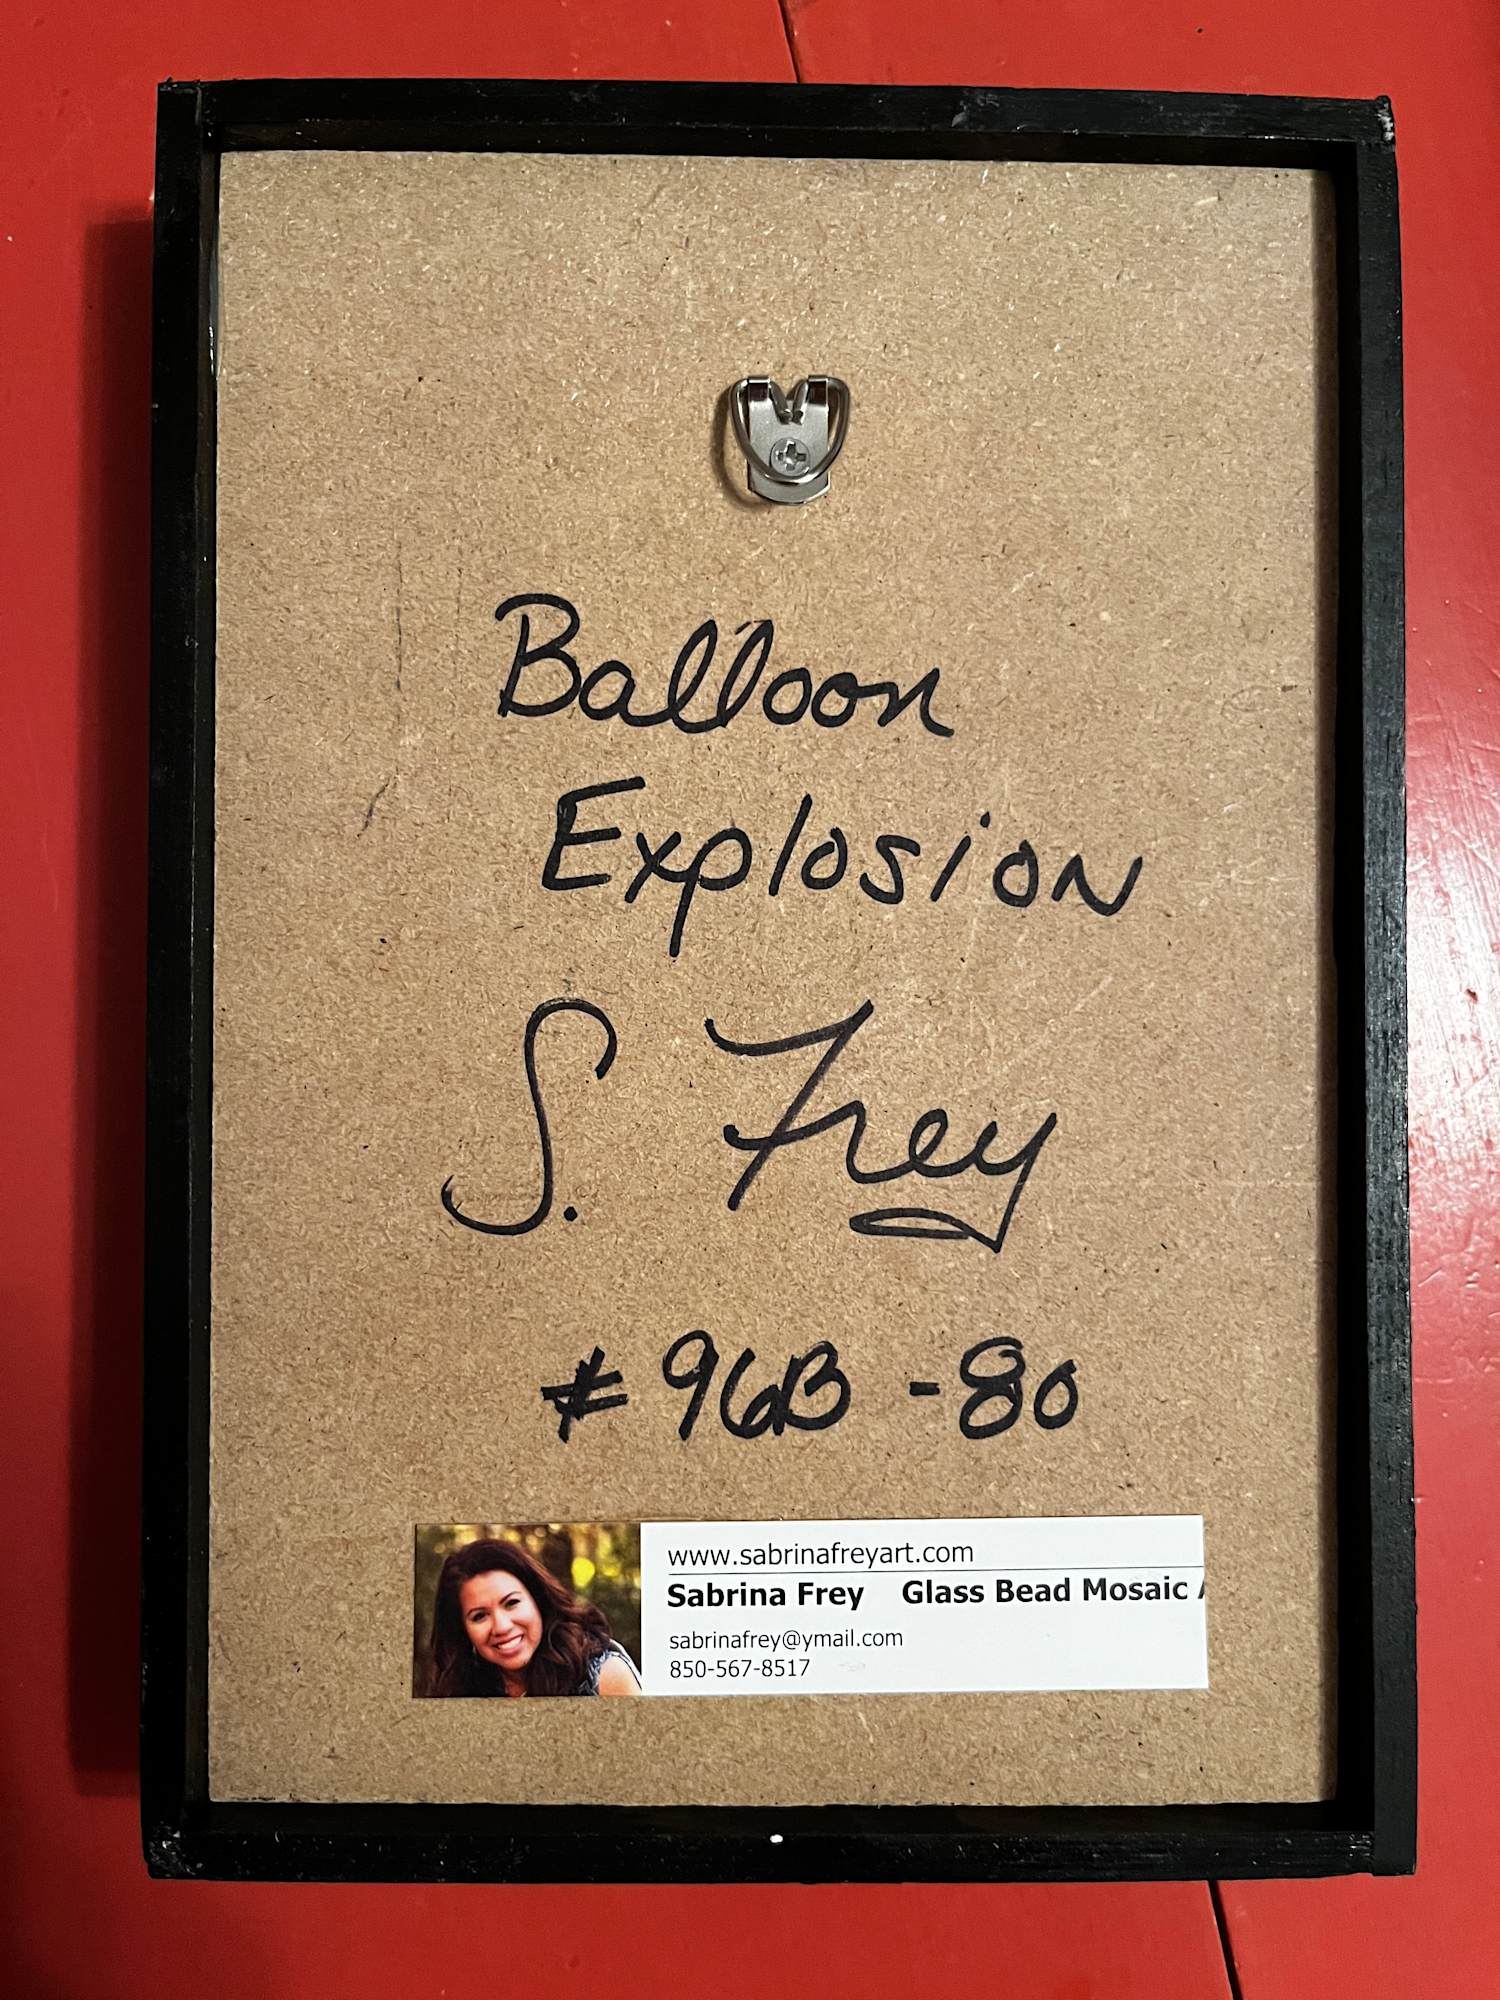 Balloon
Explosion
S. Frey
# 96B - 80
www.sabrinafreyart.com
Sabrina Frey Glass Bead Mosaic
sabrinafrey@ymail.com
850-567-8517